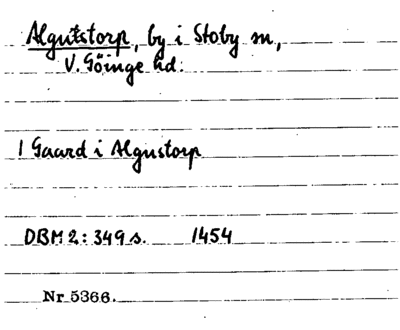 Algutstorp, by i Stoby sn,
V. Göinge hd.
1 Gaard i Algustorp
DBM 2: 349 s. 1454
Nr 5366.